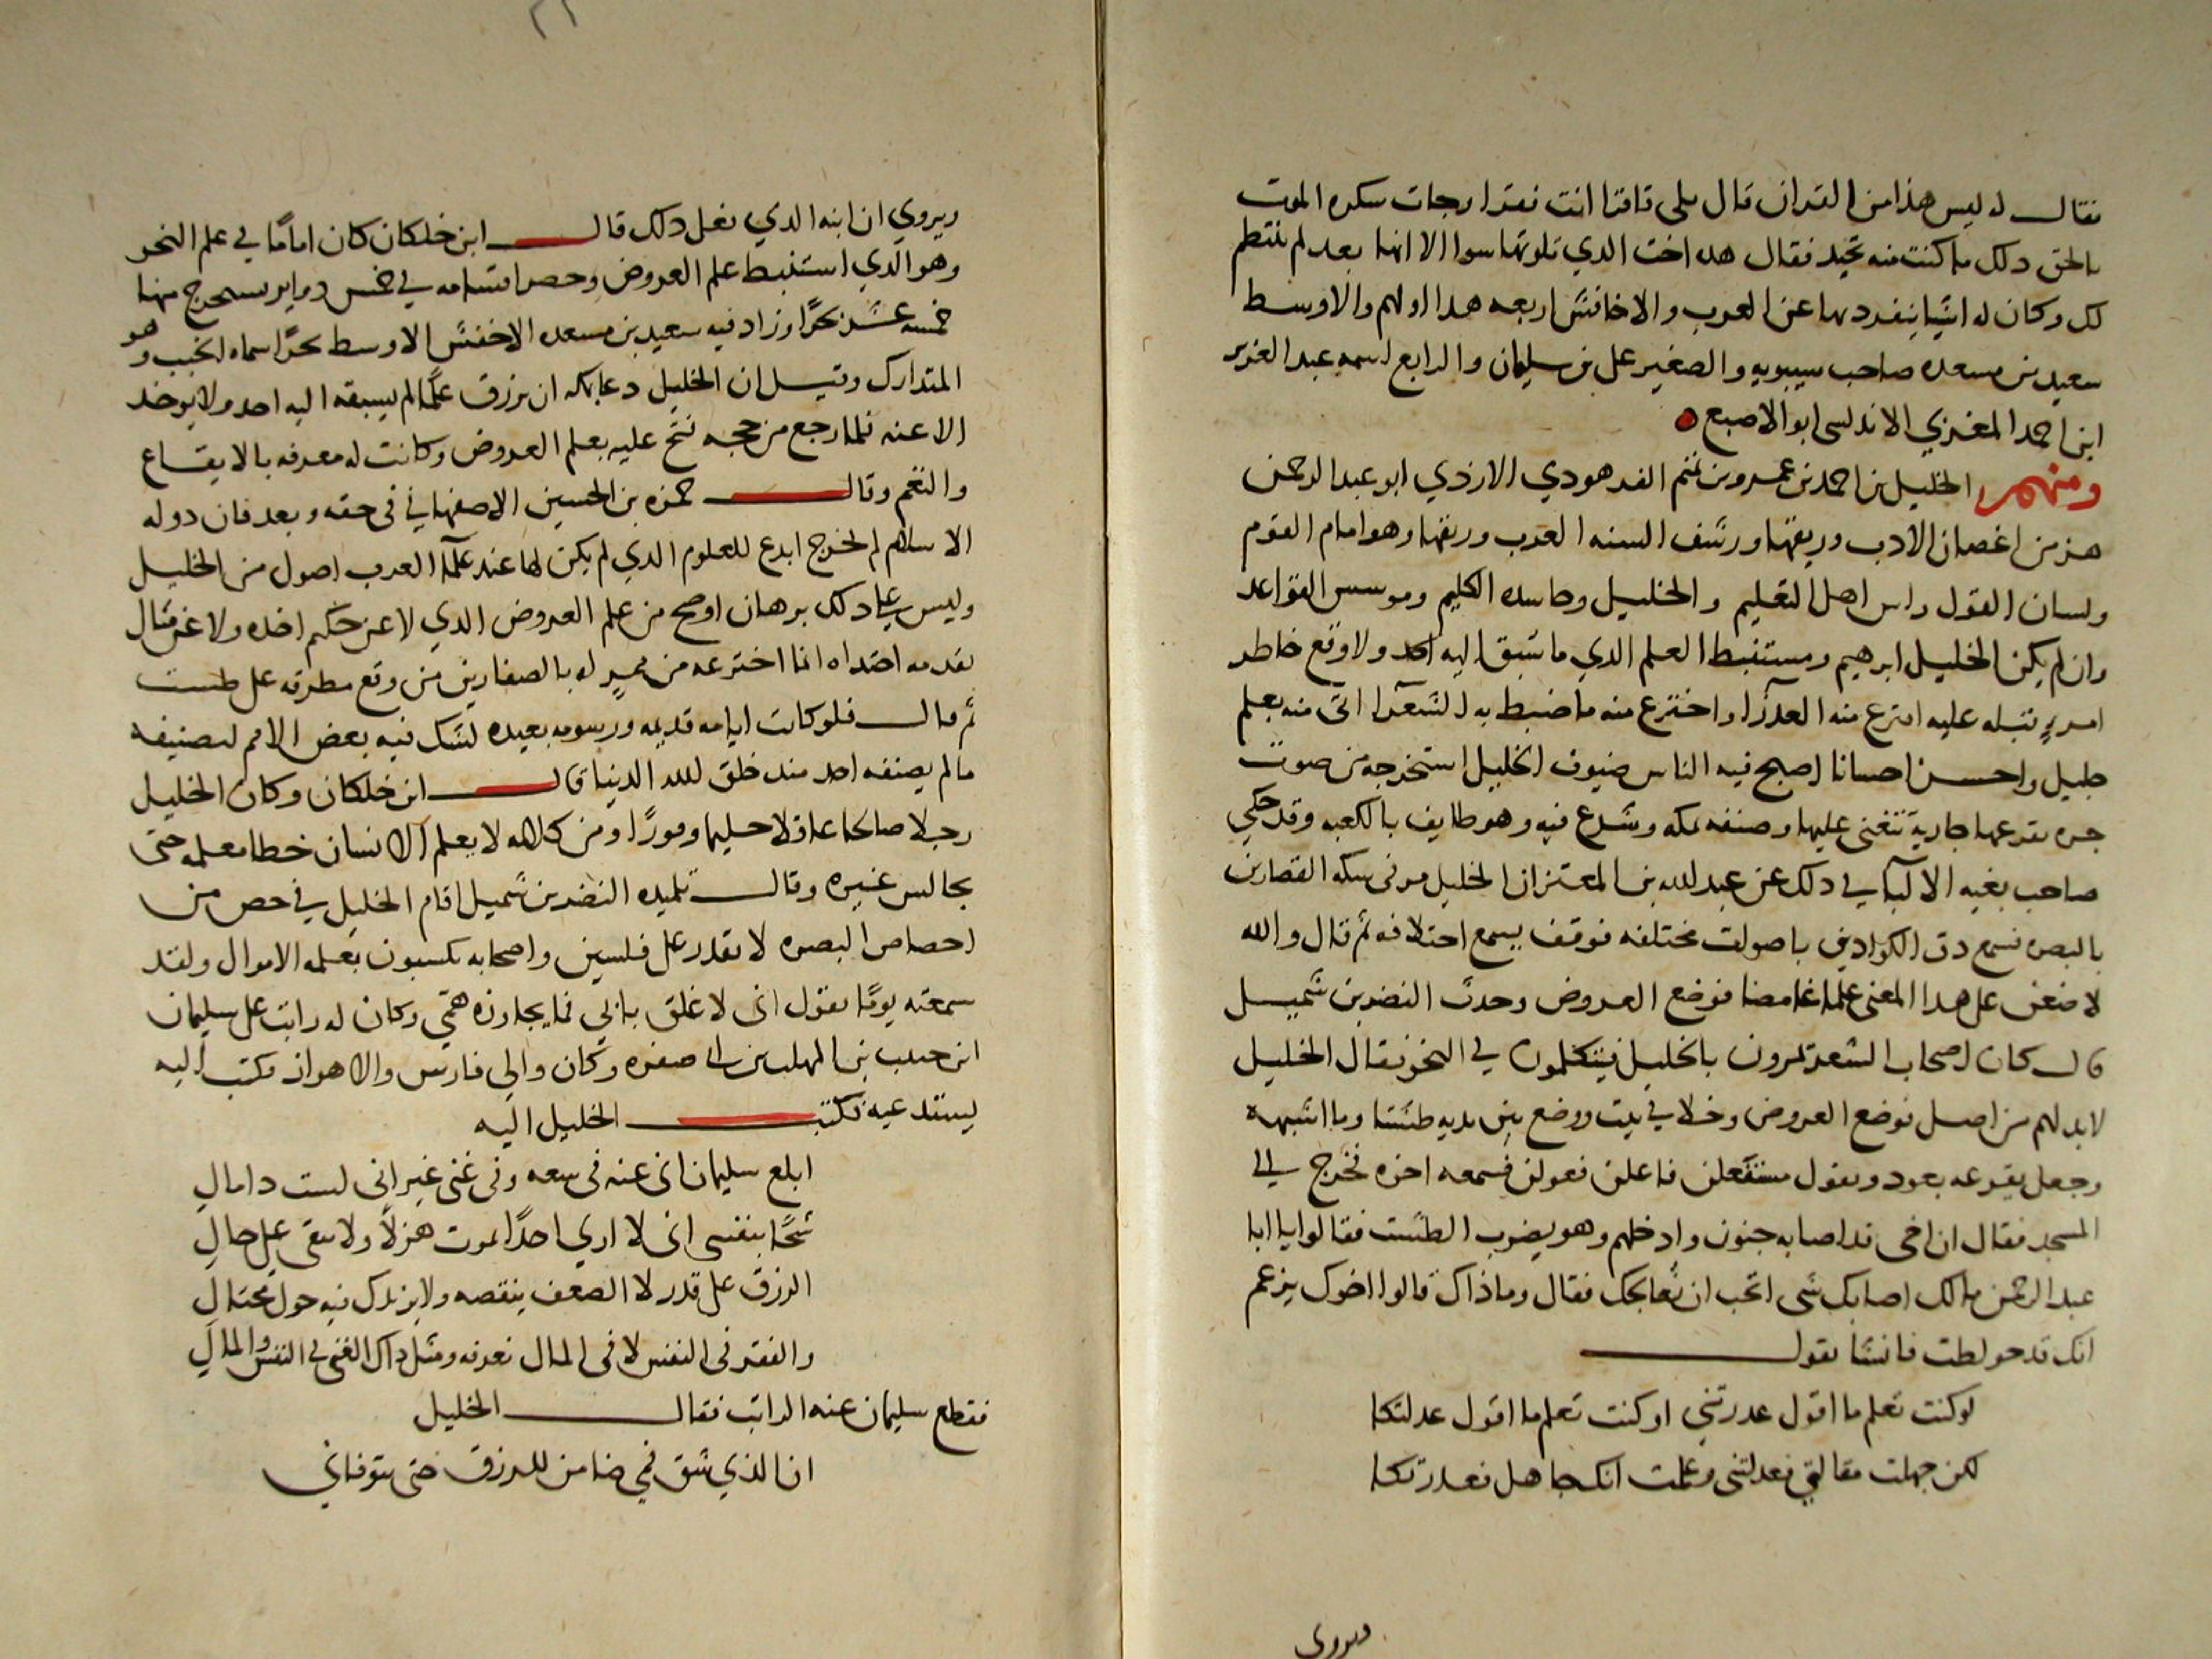 فقال له ليس هذا من القران قال بلى فاقرا انت فقرا وجات سكره الموت
بالحق دلك ما كنت منه تحيد فقال هده اخت الدي تلوتها سوا الا انها بعد لم تنتظم
لك وكان له اشيا ينفرد بها عن العرب والاخافش اربعه هدا اولهم والاوسط
سعيد بن مسعده صاحب سيبويه والصغير على بن سليمان والرابع اسمه عبد العزيز
ابن احمد المغربي الاندلسى ابو الاصبع
ومنهم الخليل بن احمد بن عمرو بن تميم الفرهودي الازدي ابو عبد الرحمن
هز من اغصان الادب وريقها ورشف السنه العرب وريقها وهو امام القوم
ولسان القول وراس اهل التعليم والخليل وحاسده الكليم وموسس القواعد
وان لم يكن الخليل ابرهيم ومستنبط العلم الدي ما سبق اليه احد ولا وقع خاطر
امرءٍ قبله عليه اخترع منه ما ضبط به الشعرآ اتى منه بعلم
جليل واحسن احسانا اصبح فيه الناس ضيوف الخليل استخرجه من صوت
جره تقرعها جارية تتغنى عليها وصنفه بمكه وشرع فيه وهو طايف بالكعبه وقد حكي
صاحب بغيه الالبآ في دلك عن عبد الله بن المعتز ان الخليل مر فى سكه القصارين
بالبصره فسمع دق الكوادين باصوات مختلفه فوقف يسمع اختلافه ثم قال والله
لاضعن على هدا المعنى علما غامضا فوضع العروض وحدث النضر بن شميل
قال كان اصحاب الشعر يمرون بالخليل فيتكلمون في النحو فقال الخليل
لابد لهم من اصل فوضع العروض وخلا في بيت ووضع بين يديه طشتا وما اشبهه
وجعل يقرعه بعود ويقول مستفعلن فاعلن فعولن فسمعه اخوه فخرج الى
المسجد فقال ان اخى قد اصابه جنون وادخلهم وهو يضرب الطشت فقالوا يا ابا
عبد الرحمن مالك اصابك شى اتحب ان نعالجك فقال وما ذاك قالوا اخوك يزعم
انك قد خولطت فانشا يقول
لو كنت تعلم ما اقول عدرتني او كنت تعلم ما اقول عدلتكا
لكن جهلت مقالتي فعدلتنى وعلمت انك جاهل فعدرتكا
ويروى
ويروي ان ابنه الدي فعل دلك قال ابن خلكان كان امامًا في علم النحو
وهو الدي استنبط علم العروض وحصر اقسامه في خمس دواير يستخرج منها
خمسه عشر بحرًا وزاد فيه سعيد بن مسعده الاخفش الاوسط بحرًا سماه الخبب وهو
المتدارك وقيل ان الخليل دعا بمكه ان يرزق علمًا لم يسبقه اليه احد ولا يوخد
الا عنه فلما رجع من حجه فتح عليه بعلم العروض وكانت له معرفه بالايقاع
والنغم وقال حمزه بن الحسين الاصفهاني فى حقه وبعد فان دوله
الاسلام لم تخرج ابدع للعلوم الدي لم يكن لها عند علمآ العرب اصول من الخليل
وليس على دلك برهان اوضح من علم العروض الدي لا عن حكيم اخده ولا عن مثال
تقدمه احتداه انما اخترعه من ممر له بالصفارين من وقع مطرقه على طست
ثم قال فلو كانت ايامه قديمه ورسومه بعيده لشك فيه بعض الامم لتصنيفه
ما لم يصنفه احد مند خلق الله الدنيا قال ابن خلكان وكان الخليل
رجلا صالحا عاقلا حليما وقورًا ومن كلامه لا يعلم الانسان خطا معلمه حتى
يجالس غيره وقال تلميده النضر بن شميل اقام الخليل في خص من
اخصاص البصره لا يقدر على فلسين واصحابه يكسبون بعلمه الاموال ولقد
سمعته يومًا يقول انى لا غلق بابي فما يجاوزه همي وكان له راتب على سليمان
ابن حبيب بن المهلب بن ابي صفره وكان والي فارس والاهواز فكتب اليه
يستدعيه فكتب الخليل اليه
ابلغ سليمان انى عنه فى سعه وفى غنى غير انى لست دا مال
شحًا بنفسى انى لا اري احدًا يموت هزلًا ولا يبقى على حال
الرزق على قدر لا الضعف ينقصه ولا يزيدك فيه حول محتال
والفقر فى النفس لا فى المال نعرفه ومثل داك الغنى في النفس والمال
فقطع سليمان عنه الراتب فقال الخليل
ان الذي شق فمي ضامن للرزق حتى يتوفاني